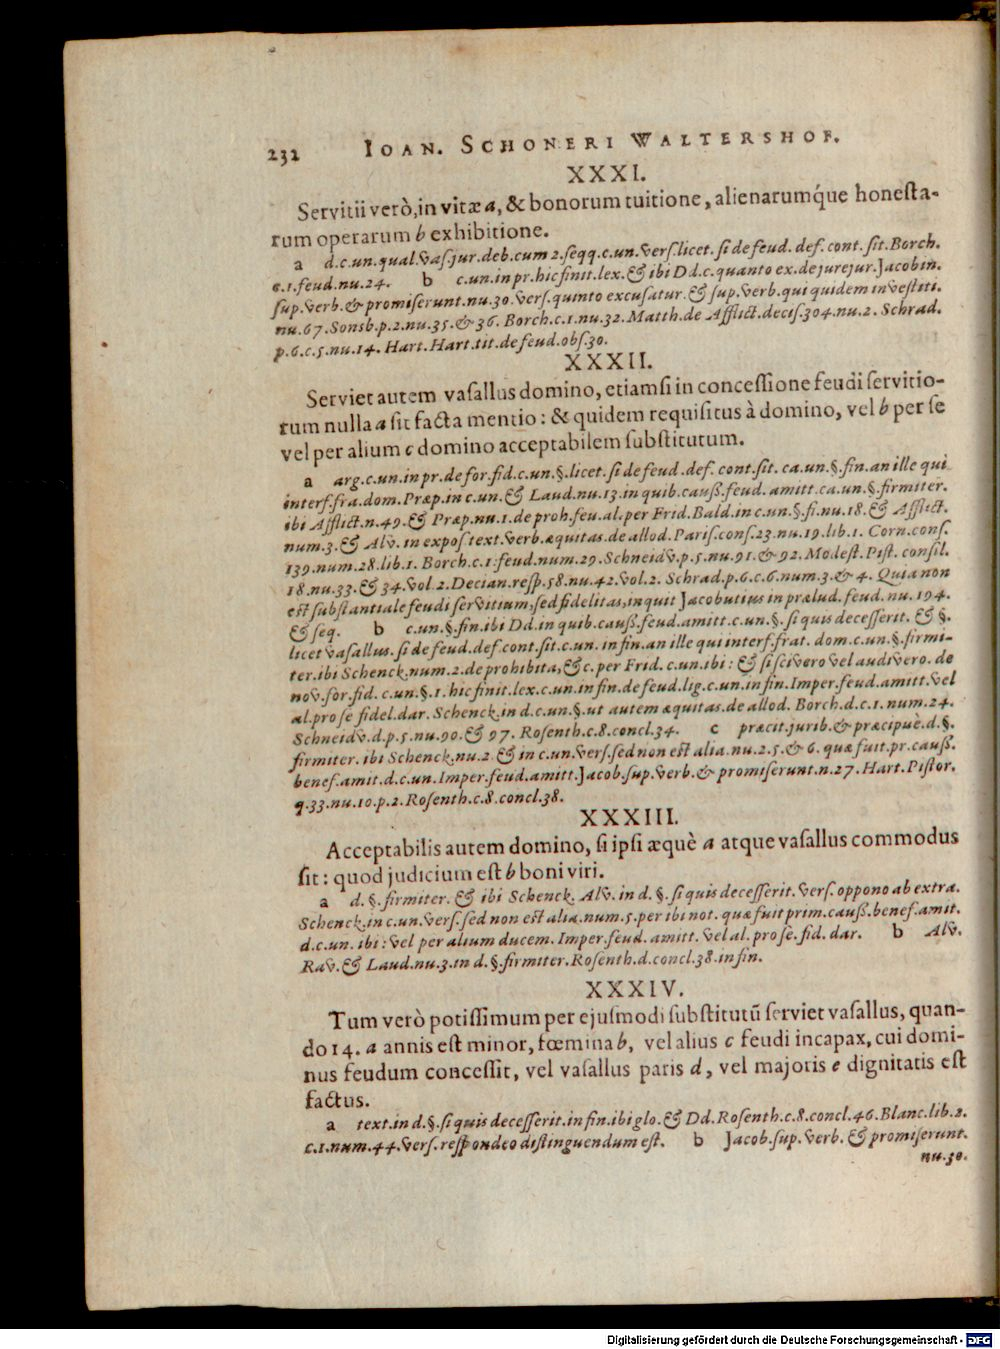 232 IOAN. SCHONERI WALTERSHOF.
XXXI.
Servitii verò, in vitæ a, & bonorum tuitione, alienarumq́ue honesta-
rum operarum b exhibitione.
a d.c.un.qual.vas.jur.deb.cum 2.seqq.c.un.vers.licet.si de feud. def. cont. sit. Borch.
c.1.feud.nu.24. b c.un.in pr.hic finit.lex.& ibi Dd.c.quanto ex.de jurejur.Jacobin.
sup.verb.& promiserunt.nu.30.vers.quinto excusatur.& sup.verb.qui quidem investiti.
nu.67.Sonsb.p.2.nu.35.& 36. Borch.c.1.nu.32.Matth.de Afflict.decis.304.nu.2. Schrad.
p.6.c.5.nu.14. Hart.Hart.tit.de feud.obs.30.
XXXII.
Serviet autem vasallus domino, etiamsi in concessione feudi servitio-
rum nulla a sit facta mentio: & quidem requisitus à domino, vel b per se
vel per alium c domino acceptabilem substitutum.
a arg.c.un.in pr.de for.fid.c.un.§.licet.si de feud.def.cont.sit. ca.un.§.fin.an ille qui
interf.fra.dom.Præp.in c.un.& Laud.nu.13.in quib.cauß.feud.amitt.ca.un.§.firmiter.
ibi Afflict.n.49.& Præp.nu.1.de proh.feu.al.per Frid.Bald.in c.un.§.fi.nu.18.& Afflict.
num.3.& Alv. in expos text.verb.æquitas.de allod.Paris.cons.23.nu.19.lib.1. Corn.cons.
139.num.28.lib.1. Borch.c.1.feud.num.29.Schneidv.p.5.nu.91.& 92.Modest.Pist. consil.
18.nu.33.& 34.vol.2.Decian.resp.58.nu.42.vol.2. Schrad.p.6.c.6.num.3.& 4. Quia non
est substantiale feudi servitium, sed fidelitas, inquit Jacobutius in prælud.feud.nu.194.
& seq. b c.un.§.fin.ibi Dd.in quib.cauß.feud.amitt.c.un.§.si quis decesserit. & §.
licet vasallus.si de feud.def.cont.sit.c.un. in fin.an ille qui interf.frat. dom.c.un.§.firmi-
ter.ibi Schenck.num.2.de prohibita,& c.per Frid. c.un.ibi: & si scivero vel audivero. de
nov.for.fid. c.un.§.1.hic finit.lex.c.un.in fin.de feud.lig.c.un.in fin.Imper.feud.amitt.vel
al.pro se fidel.dar. Schenck.in d.c.un.§.ut autem æquitas.de allod. Borch.d.c.1.num.24.
Schneidv.d.p.5.nu.90.& 97. Rosenth.c.8.concl.34. c præcit.jurib.& præcipuè.d.§.
firmiter. ibi Schenck.nu.2.& in c.un.vers.sed non est alia.nu.2.5.& 6. quæ fuit.pr.cauß.
benef.amit.d.c.un.Imper.feud.amitt.Jacob.sup.verb.& promiserunt.n.27.Hart.Pistor.
q.33.nu.10.p.2.Rosenth.c.8.concl.38.
XXXIII.
Acceptabilis autem domino, si ipsi æquè a atque vasallus commodus
sit: quod judicium est b boni viri.
a d.§.firmiter.& ibi Schenck. Alv.in d.§.si quis decesserit.vers.oppono ab extra.
Schenck.in c.un.vers.sed non est alia.num.5.per ibi not.quæ fuit prim.cauß.benef.amit.
d.c.un. ibi: vel per alium ducem. Imper.feud.amitt.vel al.pro se.fid.dar. b Alv.
Rav.& Laud.nu.3.in d.§.firmiter.Rosenth.d.concl.38.in fin.
XXXIV.
Tum verò potissimum per ejusmodi substitutū serviet vasallus, quan-
do 14. a annis est minor, fœmina b, vel alius c feudi incapax, cui domi-
nus feudum concessit, vel vasallus paris d, vel majoris e dignitatis est
factus.
a text.in d.§.si quis decesserit.in fin.ibi glo.& Dd.Rosenth.c.8.concl.46.Blanc.lib.2.
c.1.num.44.vers.respondeo distinguendum est. b Jacob.sup.verb.& promiserunt.
nu.30.
Digitalisierung gefördert durch die Deutsche Forschungsgemeinschaft - DFG